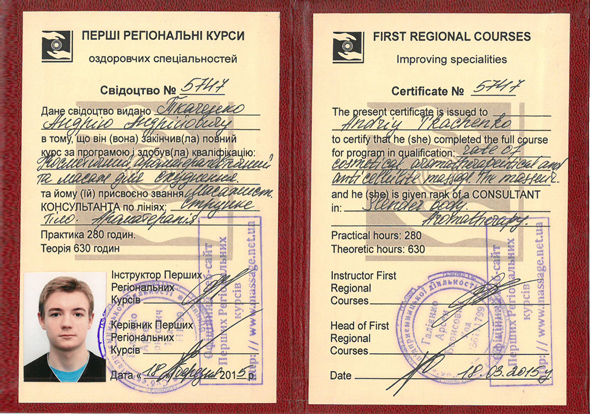 ПЕРШІ РЕГІОНАЛЬНІ КУРСИ
оздоровчих спеціальностей
Свідоцтво № 5747
Дане свідоцтво видано Ткаченко
Андрію Андрійовичу
в тому, що він (вона) закінчив(ла) повний
курс за програмою і здобув(ла) кваліфікацію:
та масаж для схуднення
та йому (їй) присвоєно звання Масажист.
КОНСУЛЬТАНТА по лініях: Стрункe
тіло. Аромотерапія.
Практика 280 годин.
Теорія 630 годин
Інструктор Перших
Регіональних
Курсів
Керівник Перших
Регіональних
Курсів
Дата «18» березня 2015 р
Офіційний веб-сайт
Перших Регіональних
курсів
http://www.massage.net.ua
FIRST REGIONAL COURSES
Improving specialities
Certificate № 5747
The present certificate is issued to
Andriy Tkachenko
to certify that he (she) completed the full course
for program in qualification:
anti cellulite massage. The masseur.
and he (she) is given rank of a CONSULTANT
in: Slender body.
Aromatherapy.
Practical hours: 280
Theoretic hours: 630
Instructor First
Regional
Courses
Head of First
Regional
Courses
Date 18.03.2015 y
Офіційний веб-сайт
Перших Регіональних
курсів
http://www.massage.net.ua